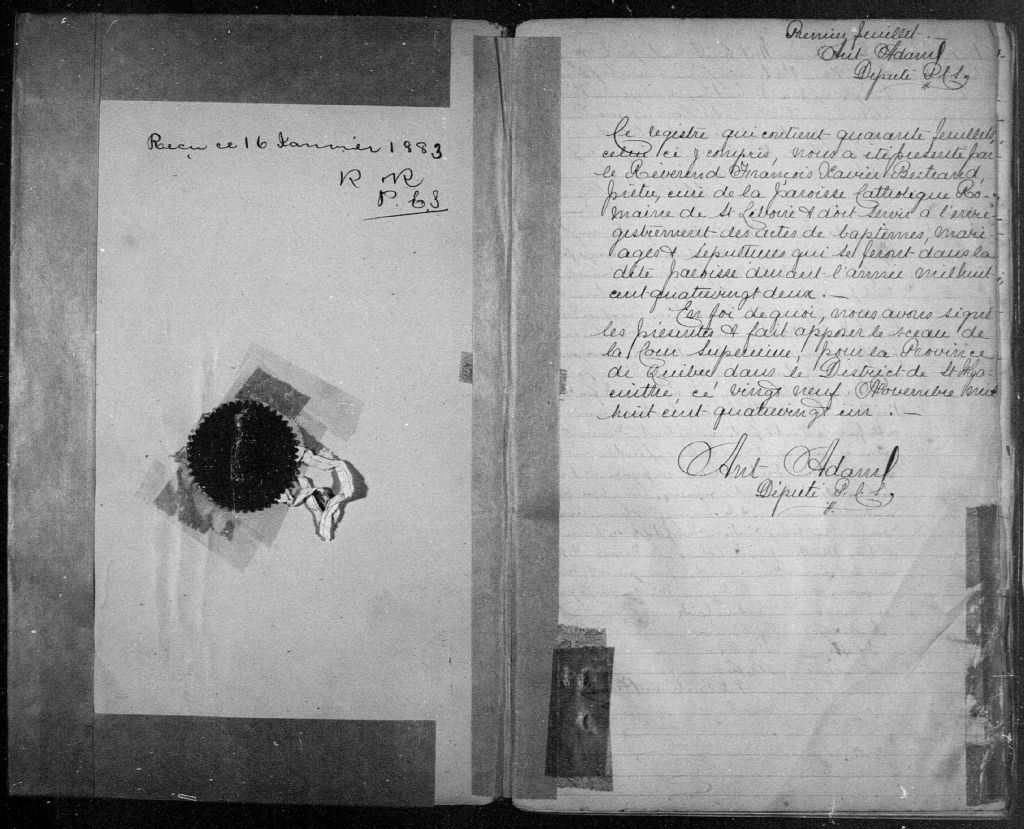 Reçu ce 16 Janvier 1883
R R
P. C. S
Premier feuillet. —
Ant Adam
Député P. C. S.
Ce registre qui contient quarante feuillets,
celui ci y compris, nous a été présenté par
le Révérend François Xavier Bertrand,
prêtre, curé de la paroisse Catholique Ro-
maine de St Liboire & doit servir à l'enre-
gistrement des actes de baptêmes, mari-
ages & sépultures qui se feront dans la
dite paroisse durant l'année mil huit
cent quatrevingt deux. —
En foi de quoi, nous avons signé
les présentes & fait apposer le sceau de
la Cour Supérieure, pour la Province
de Québec dans le District de St Hya-
cinthe ce vingt neuf Novembre mil
huit cent quatrevingt un. —
Ant Adam
Député P. C. S.